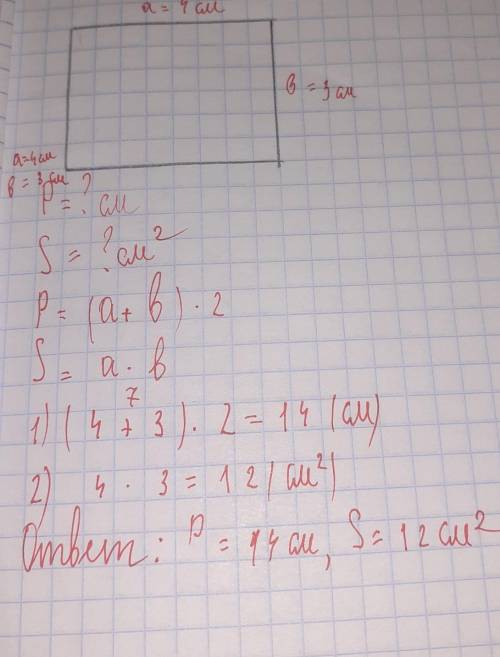 a = 4 см
в = 3 см
a=4см
в = 3 см
P = ? см
S = ? см²
P = (a + в) · 2
S = a · в
7
1) (4 + 3) · 2 = 14 (см)
2) 4 · 3 = 12 (см²)
Ответ: P = 14 см, S = 12 см²